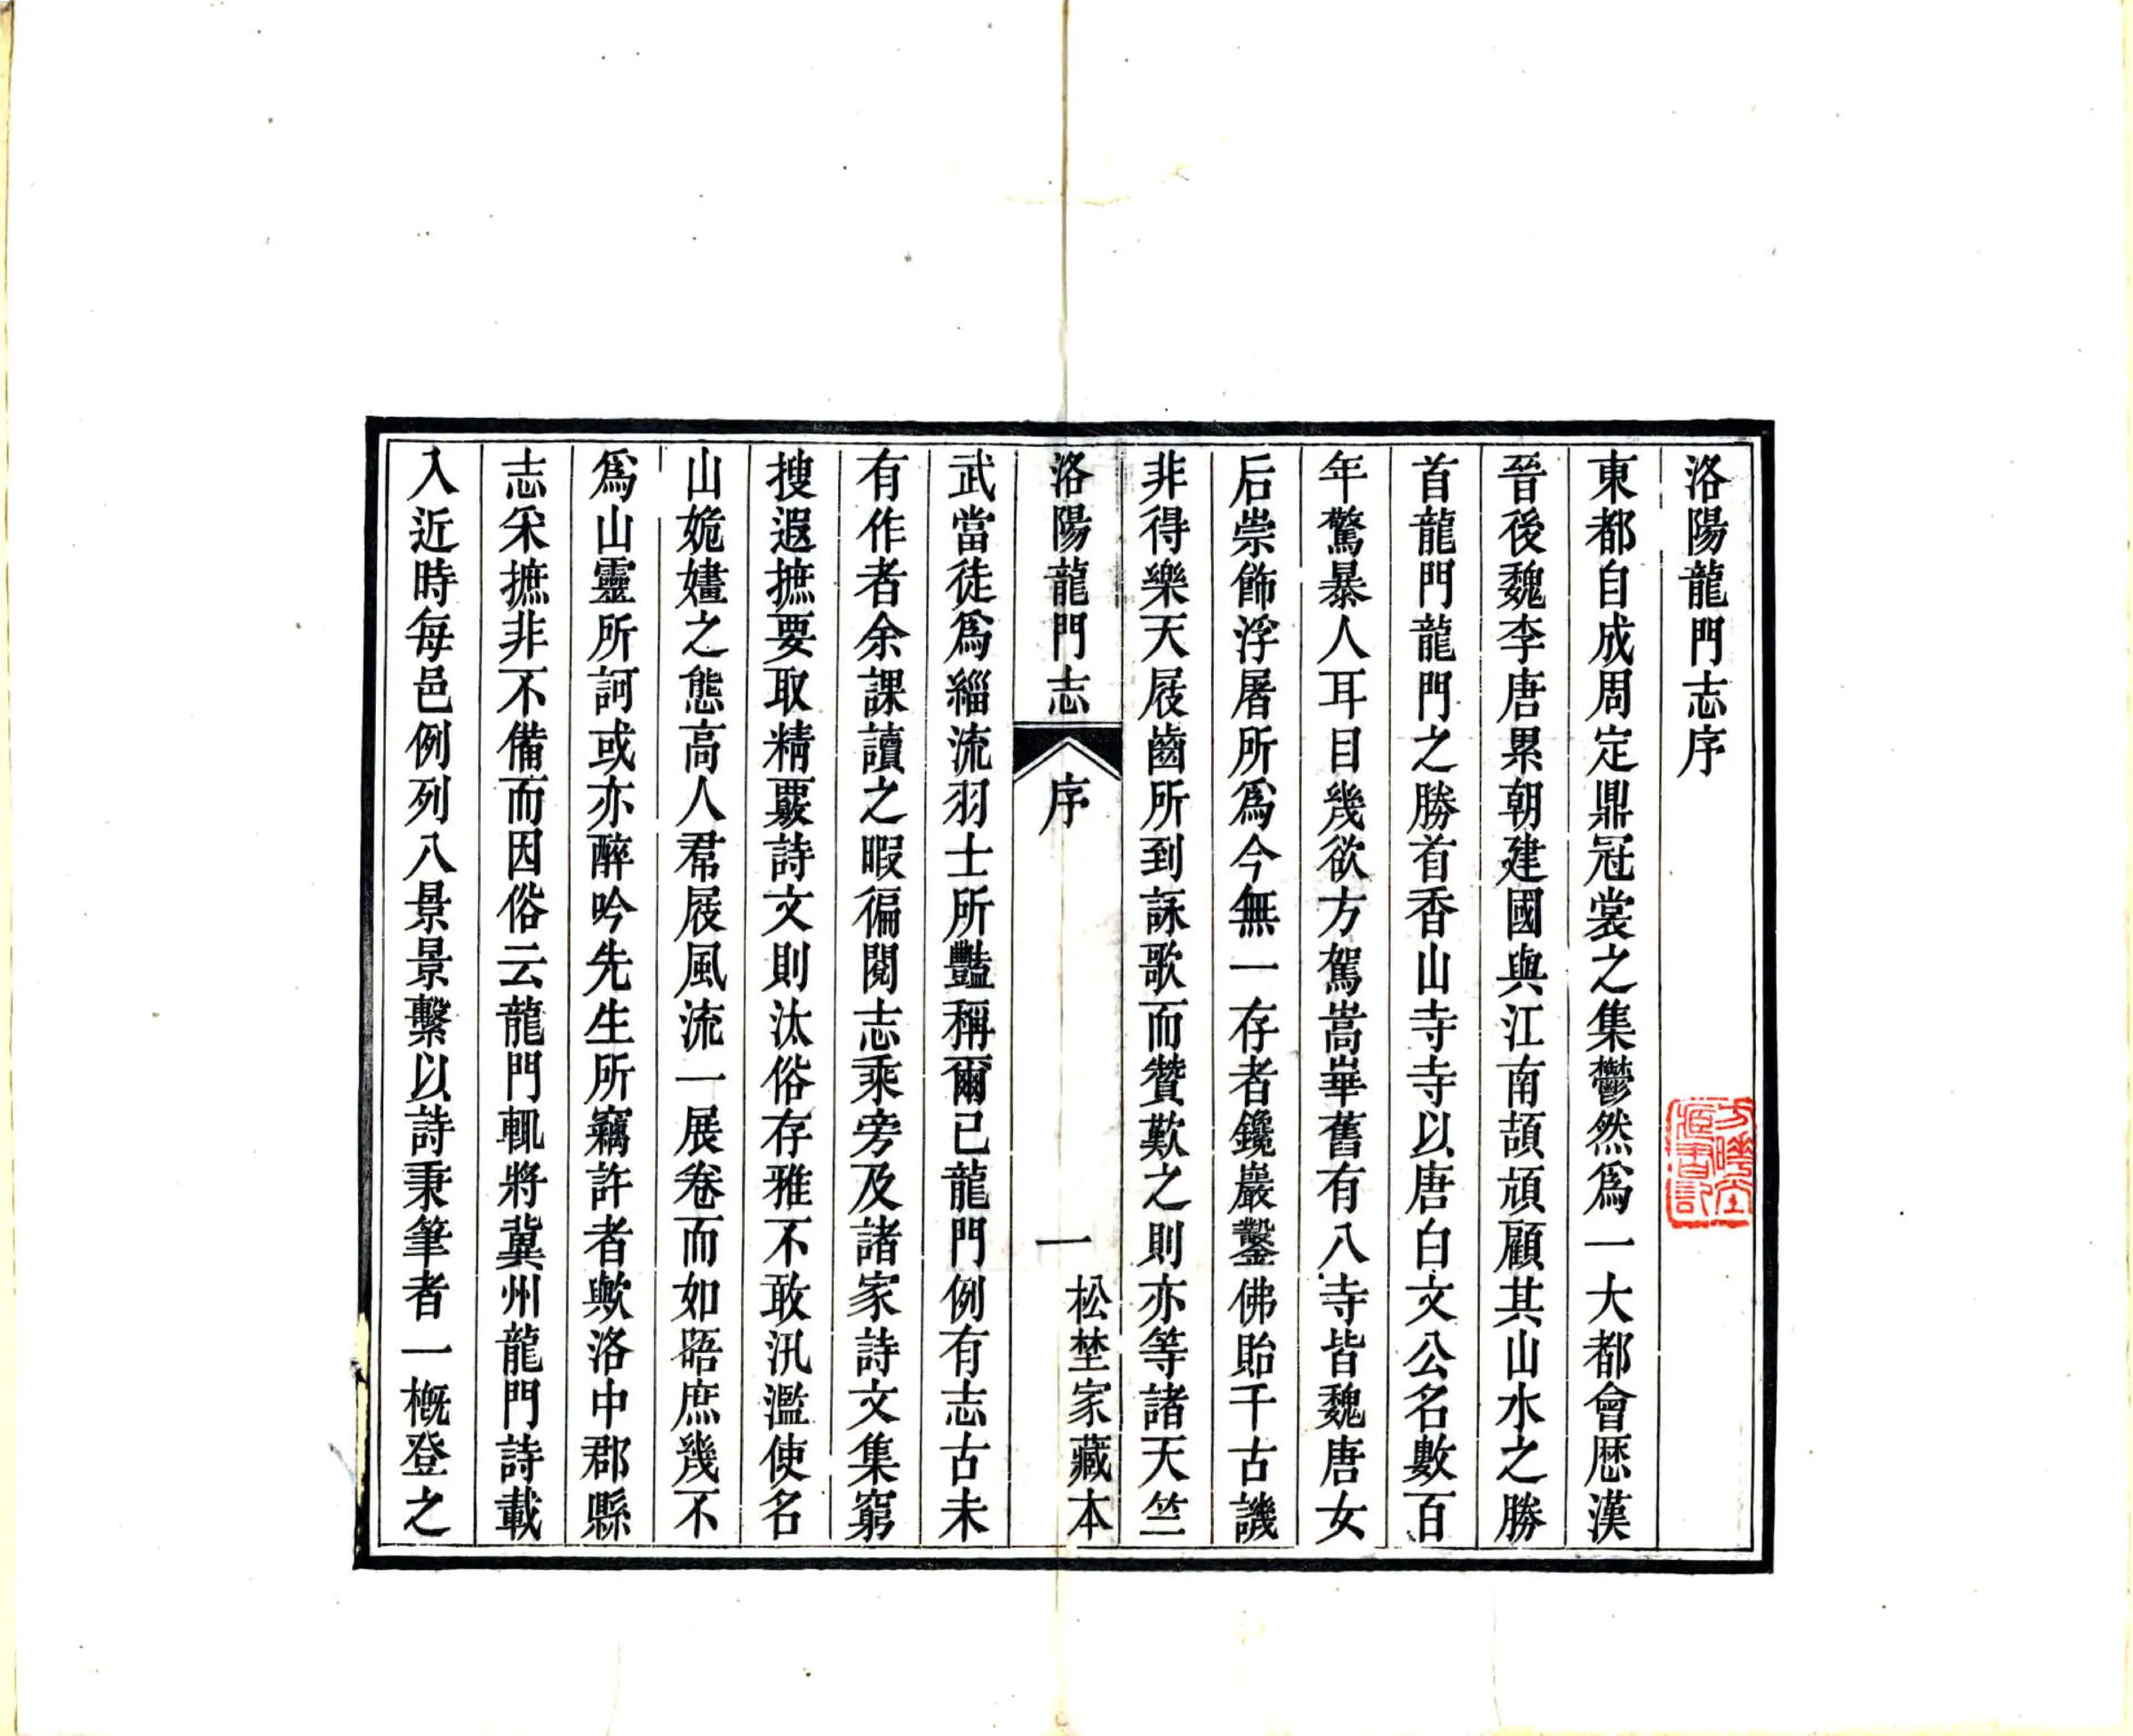 洛陽龍門志序
東都自成周定鼎冠裳之集鬱然爲一大都會歷漢
晉後魏李唐累朝建國與江南頡頏顧其山水之勝
首龍門龍門之勝首香山寺寺以唐白文公名數百
年驚暴人耳目幾欲方駕嵩崋舊有八寺皆魏唐女
后崇飾浮屠所爲今無一存者鑱巖鑿佛貽千古譏
非得樂天屐齒所到詠歌而贊歎之則亦等諸天竺
洛陽龍門志
序
一
松埜家藏本
武當徒爲緇流羽士所豔稱爾已龍門例有志古未
有作者余課讀之暇徧閱志乘旁及諸家詩文集窮
搜遐摭要取精覈詩文則汰俗存雅不敢汎濫使名
山婗嫿之態高人裙屐風流一展卷而如晤庶幾不
爲山靈所訶或亦醉吟先生所竊許者歟洛中郡縣
志采摭非不備而因俗云龍門輒將冀州龍門詩載
入近時每邑例列八景景繫以詩秉筆者一槪登之
方曉堂
藏書記